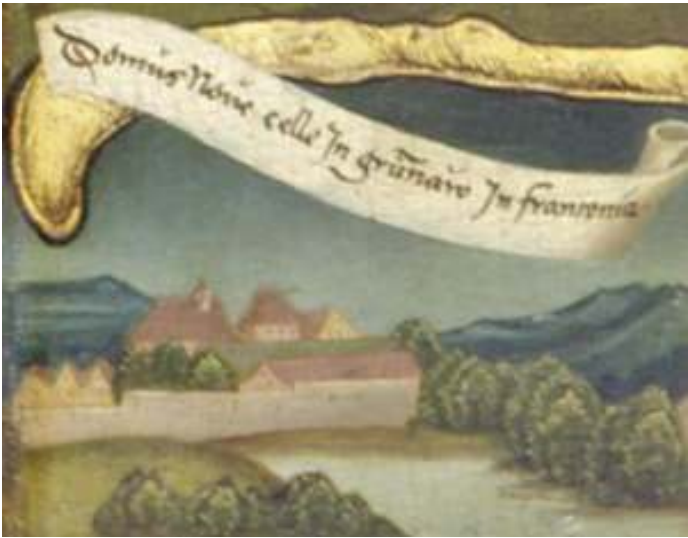 Domus Noue celle In grunaw In franconia